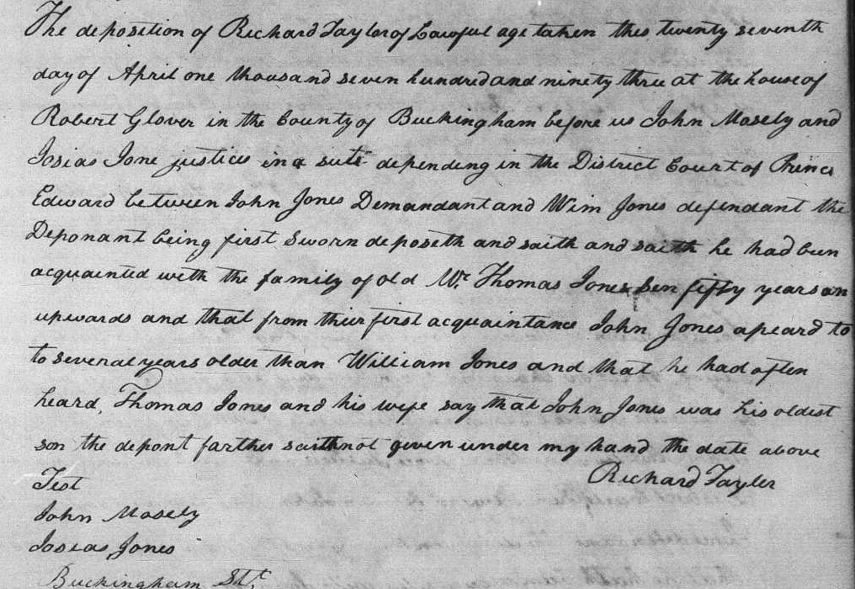 The deposition of Richard Taylor of Lawful age taken this twenty seventh
day of April one thousand seven hundred and ninety three at the house of
Robert Glover in the County of Buckingham before us John Mosely and
Josias Jone justices in a sute depending in the District Court of Prince
Edward between John Jones Demandant and Wim Jones defendant the
Deponant being first Sworn deposeth and saith and saith he had been
acquainted with the family of old Mr. Thomas Jones ben fifty years an
upwards and that from their first acquaintance John Jones apeard to
to several years older than William Jones and that he had often
heard, Thomas Jones and his wife say that John Jones was his oldest
son the depont farther saith not given under my hand the date above
Richard Tayler
Test
John Mosely
Josias Jones
Buckingham